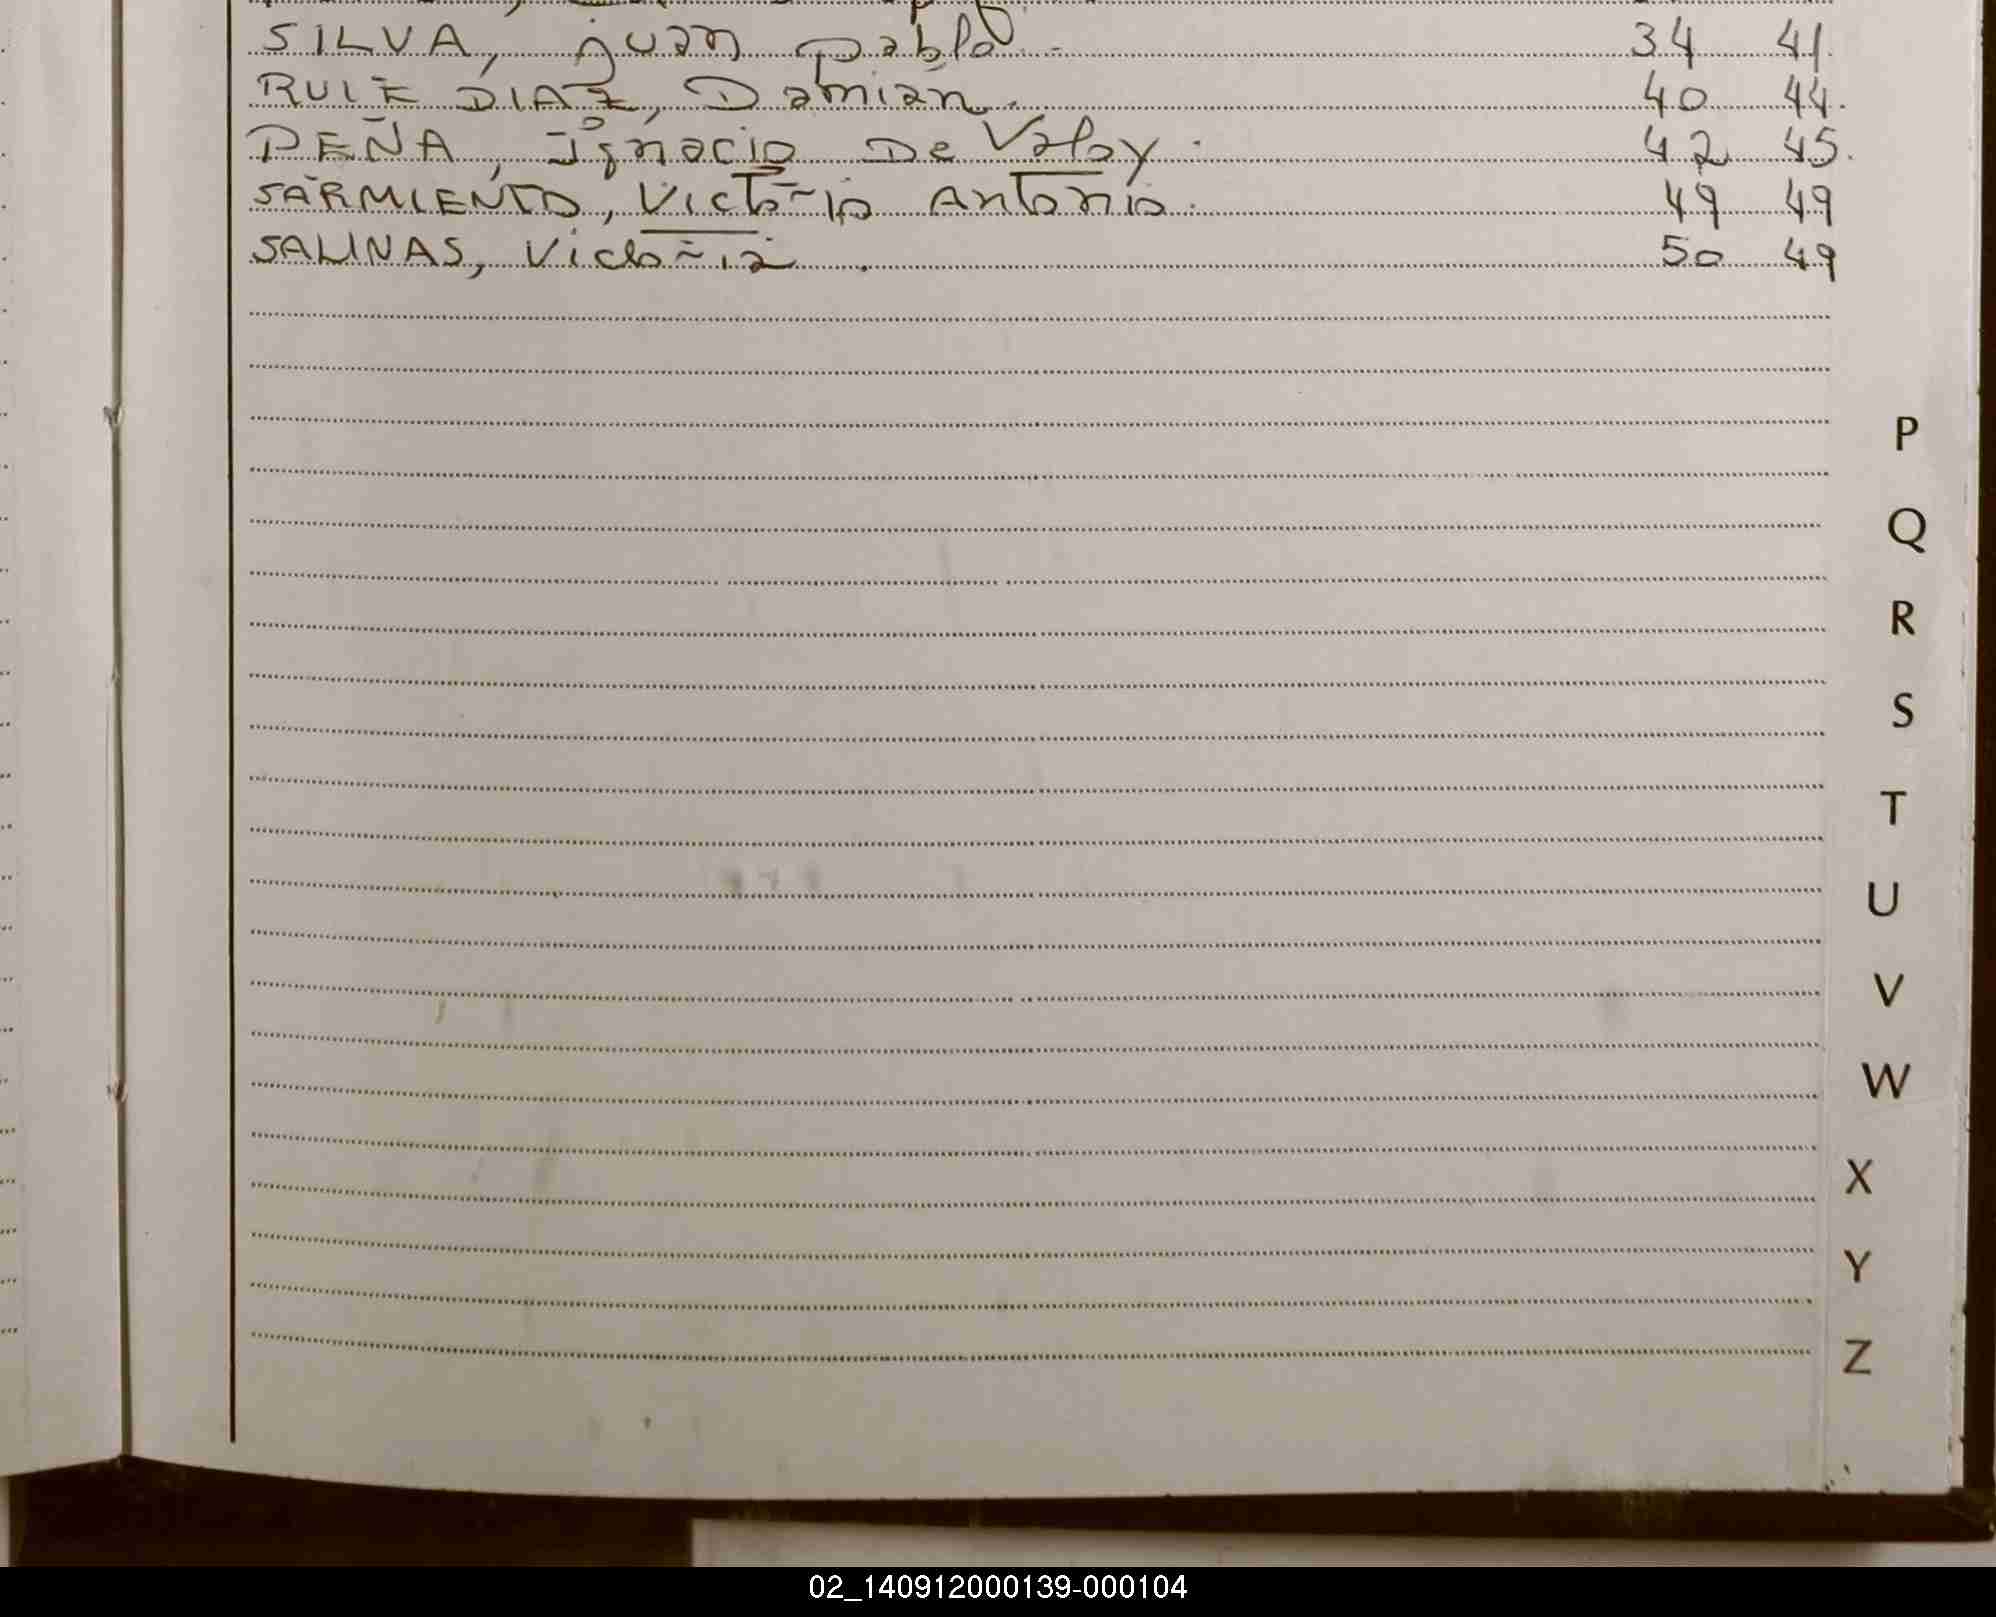 SILVA, Juan pablo. 34 41.
RUIZ DIAZ, Damian. 40 44.
PEÑA, Ignacio De Valoy. 42 45.
SARMIENTO, Victorio Antonio. 49 49
SALINAS, Victoria. 50 49
P
Q
R
S
T
U
V
W
X
Y
Z
02_140912000139-000104